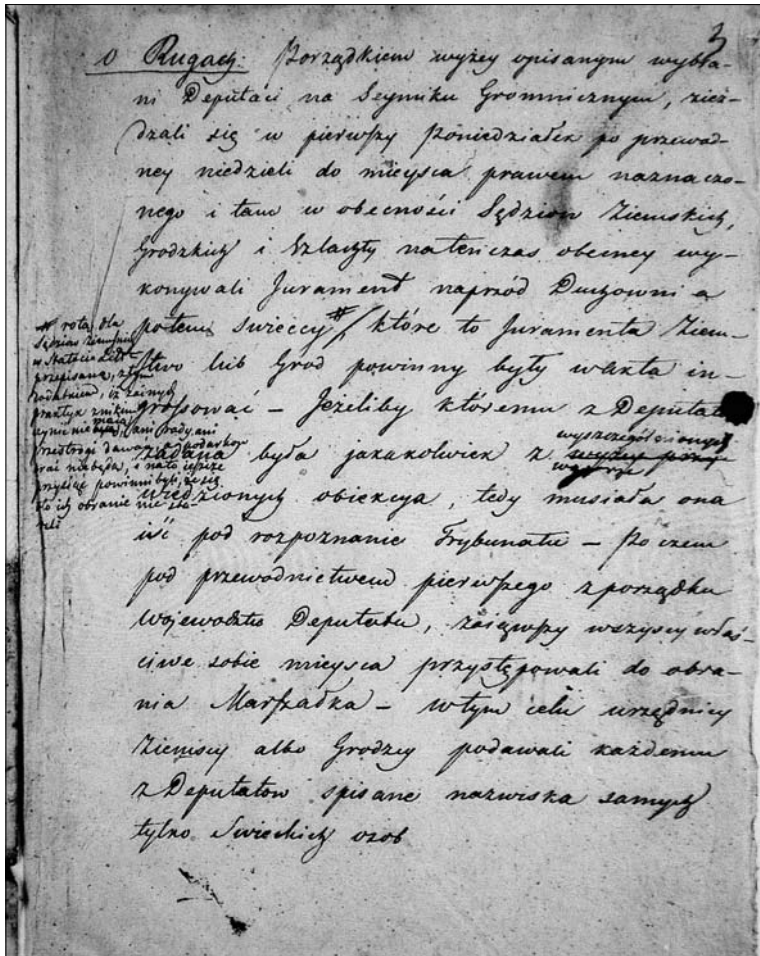 3
o Rugach: Porządkiem wyżey opisanym wybra-
ni Deputaci na Seymiku Gromnicznym, zież-
dzali się w pierwszy Poniedziałek po przewod-
ney niedzieli do mieysca prawem naznaczo-
nego i tam w obecności Sędziow Ziemskich,
Grodzkich i Szlachty natenczas obecney wy-
konywali Jurament naprzód Duchowni a
potem swieccy # które to Juramenta Ziem-
stwo lub Grod powinny były w akta in-
grossować – Jeżeliby któremu z Deputat
zadana była jakakolwiek z wyżey przy
wyszczególnionych
wiedzionych obiekcya, tedy musiała ona
iść pod rozpoznanie Trybunału – Po czem
pod przewodnictwem pierwszego z porządku
Wojewodztw Deputata, zaiąwszy wszyscy właś-
ciwe sobie mieysca przystępowali do obra-
nia Marszałka – w tym celu urzędnicy
Ziemscy albo Grodzcy podawali każdemu
z Deputatow spisane nazwiska samych
tylko Swieckich osob
# rota dla
Sędziow Ziemskich
w Statucie Litt
przepisana, z tym
dodatkiem, iż żadnych
praktyk z nikim
czynić nie maią, ani rady, ani
przestrogi dawać, a podarkow
brać nie będą, i na to ieszcze
przysięc powinni byli, że się
o ich obranie nie sta-
rali